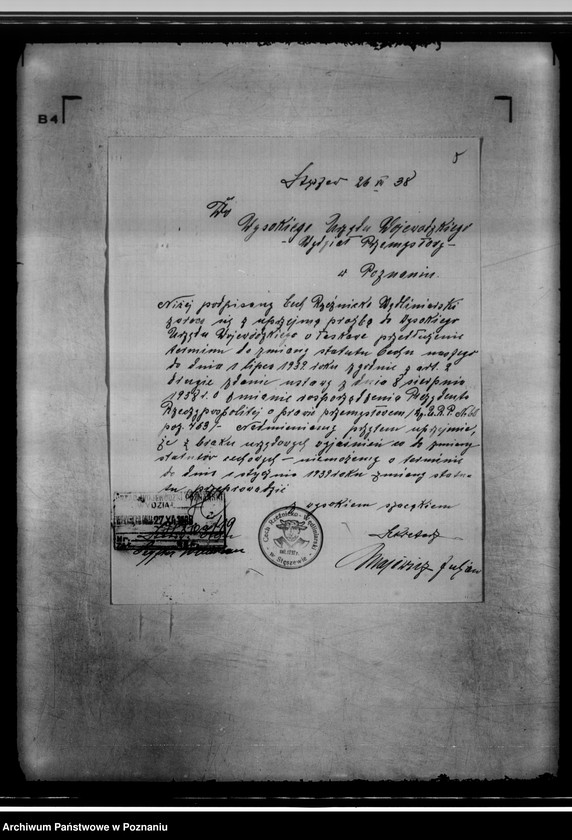 B4
5
26 XI 38
Do
Wysokiego Urzędu Wojewódzkiego
- Wydział Przemysłowy -
w Poznaniu.
Niżej podpisany Cech Rzeźnicko Wędliniarski
zwraca się z uprzejmą prośbą do Wysokiego
Urzędu Wojewódzkiego o łaskawe przedłużenie
terminu do zmiany statutu Cechu naszego
do dnia 1 lipca 1939 roku zgodnie z art. 2
drugie zdanie ustawy z dnia 8 sierpnia
1938 r. o zmianie rozporządzenia Prezydenta
Rzeczypospolitej o prawie przemysłowem /Dz.U.R.P. Nr 60
poz. 463/- Nadmieniamy przytem uprzejmie,
że z braku urzędowych wyjaśnień co do zmiany
statutów cechowych - niemożemy o terminie
do dnia 1 stycznia 1939 roku zmiany statu-
tu przeprowadzić
z wysokiem szacunkiem
Cech Rzeźnicko-Wędliniarski
w Stęszewie
Majewicz Juljan
Archiwum Państwowe w Poznaniu